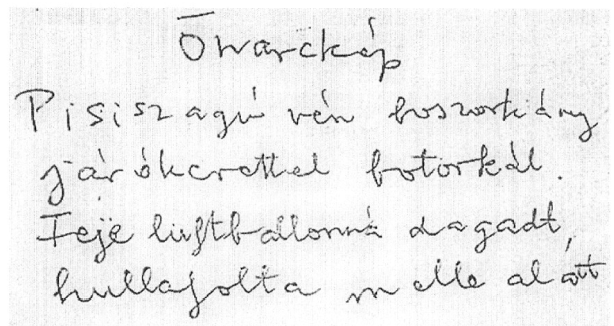 Önarckép
Pisiszagú vén boszorkány
járókerettel botorkál.
Feje lúftballonná dagadt,
hullafolta melle alatt